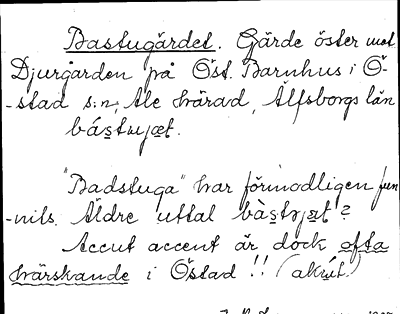 Bastugärdet. Gärde öster mot
Djurgården på Öst. Barnhus i Ö-
-stad s:n, Ale härad, Älfsborgs län
"Badstuga" har förmodligen fun-
-nits. Äldre uttal
Accut accent är dock ofta
härskande i Östad !! (akut.)